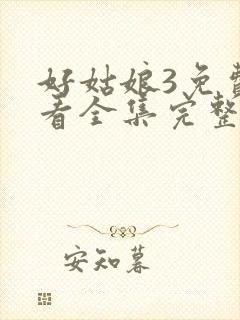 好姑娘3免费
看全集完整
安知暮